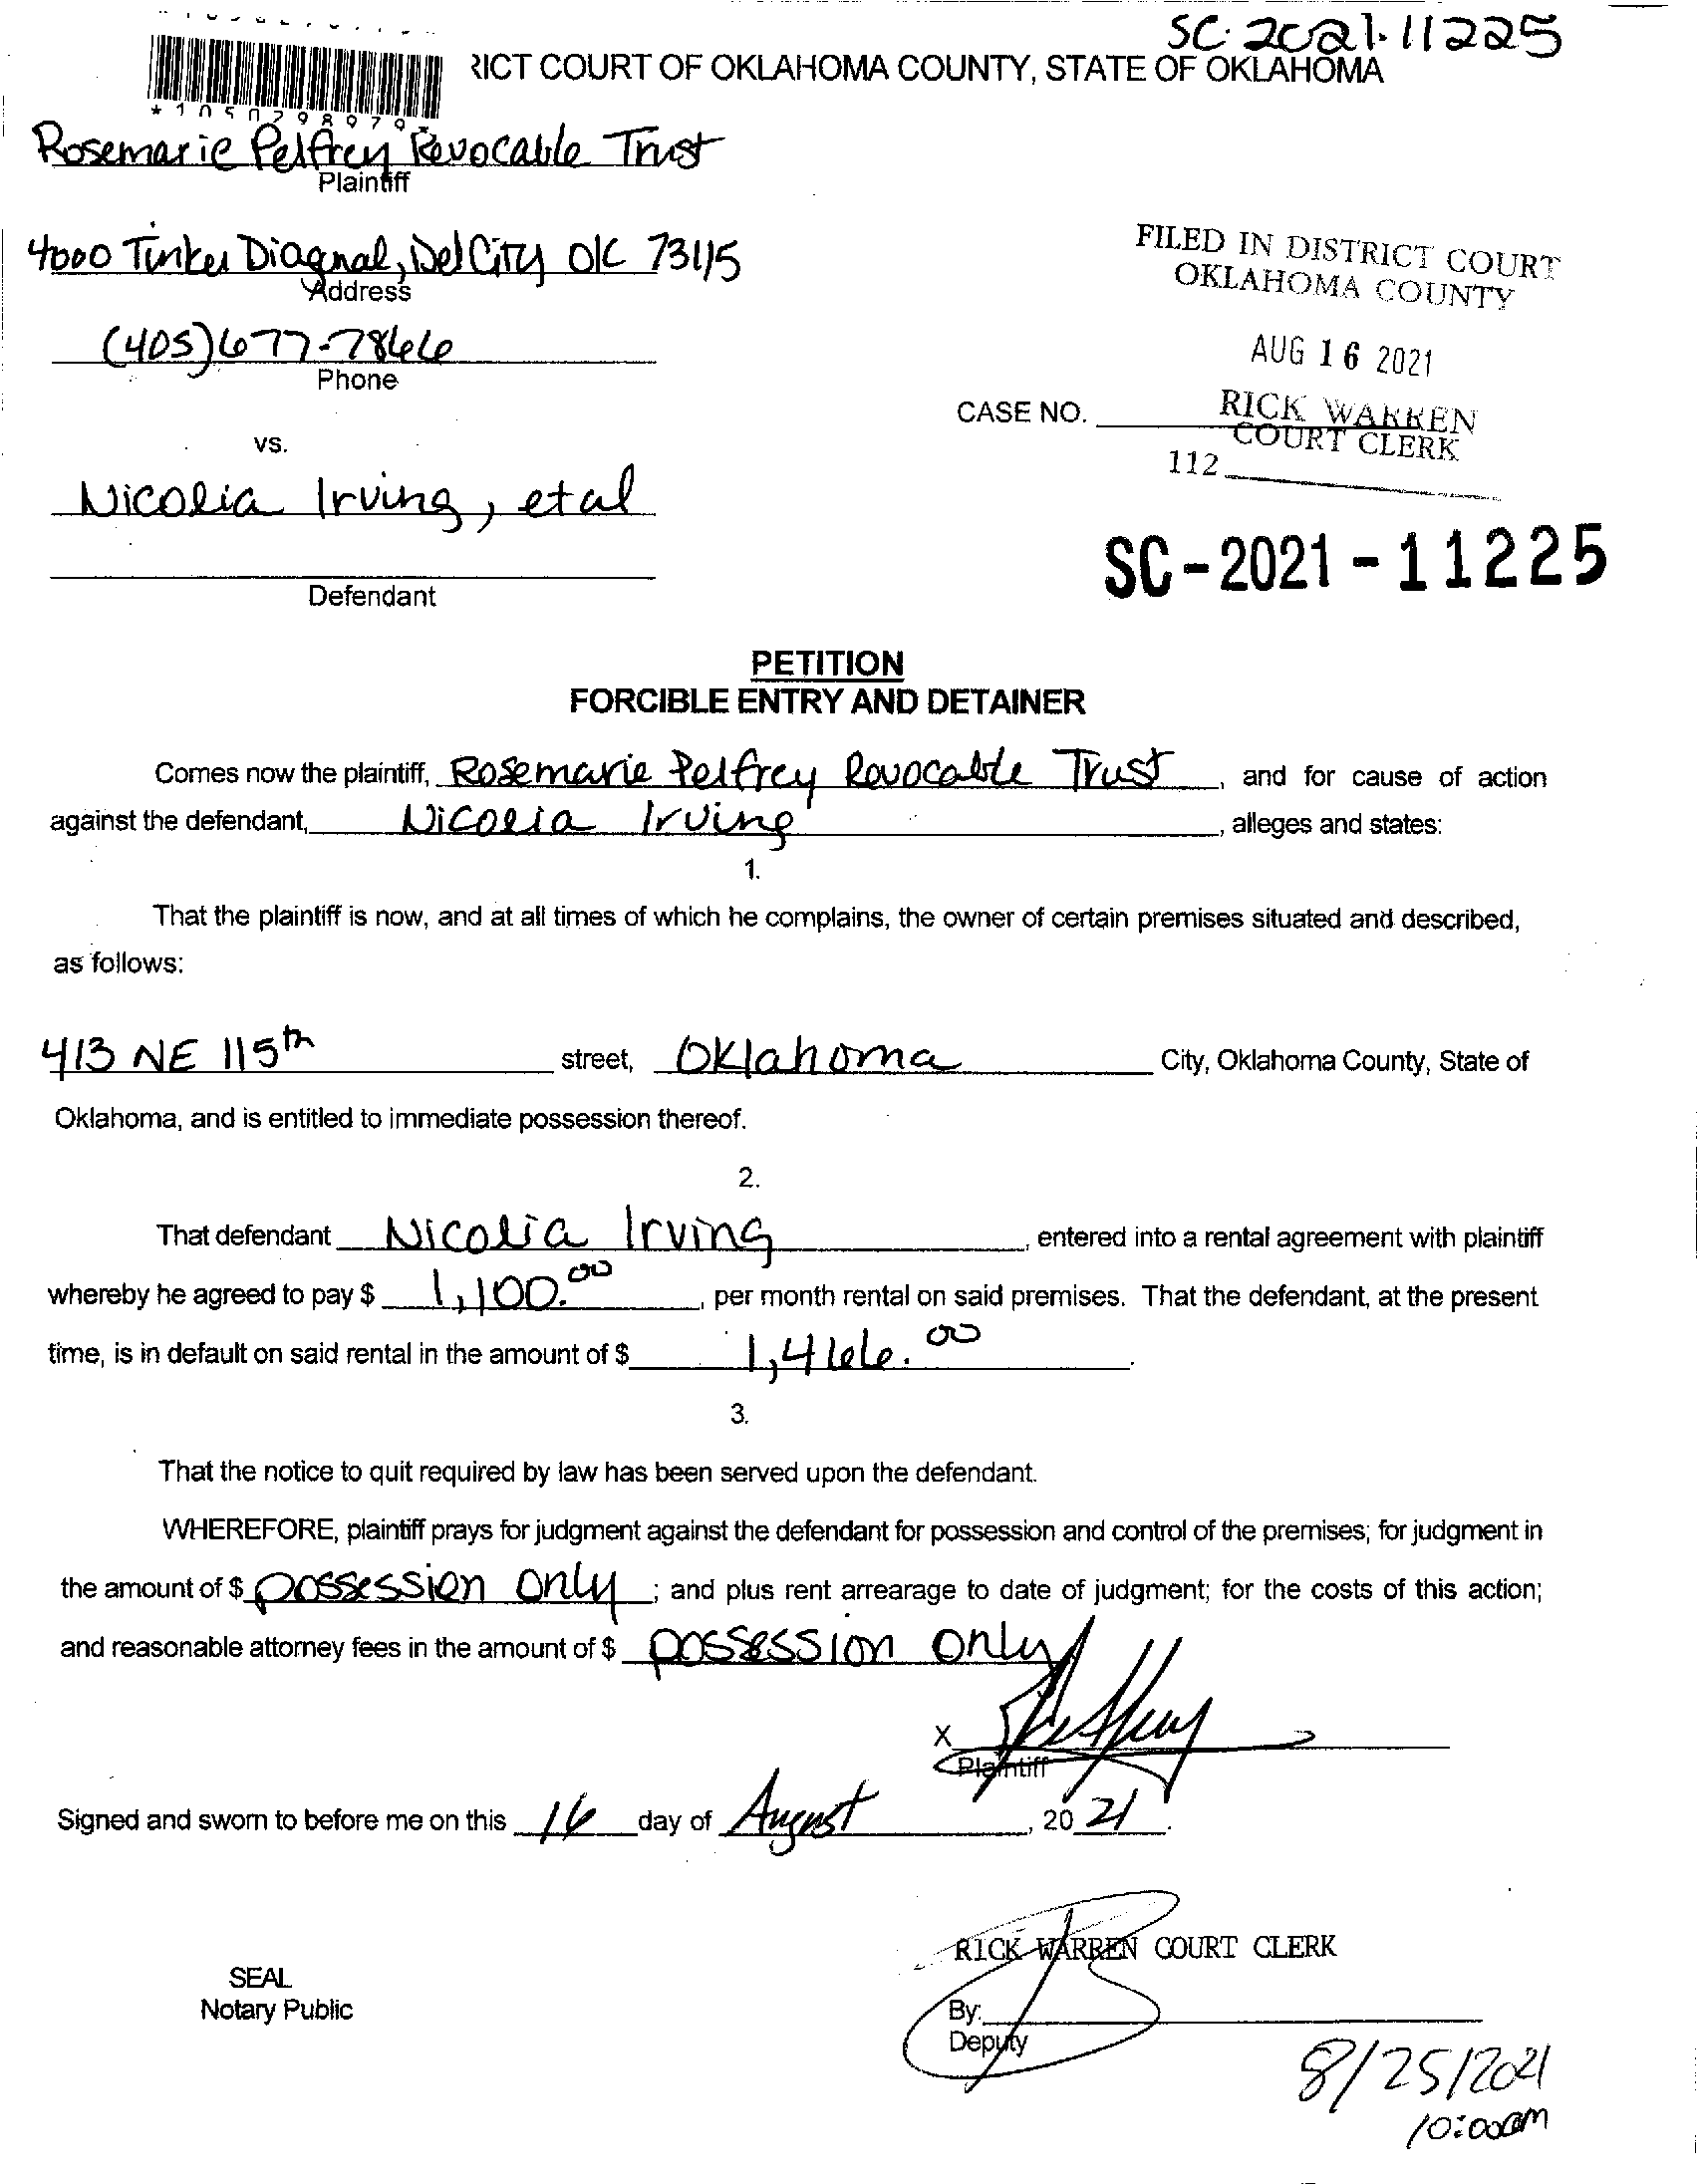 SC-2021-11225
RICT COURT OF OKLAHOMA COUNTY, STATE OF OKLAHOMA
*1050798979*
Rosemarie Pelfrey Revocable Trust
Plaintiff
4000 Tinker Diagnal, Del City OK 73115
Address
(405)677-7866
Phone
FILED IN DISTRICT COURT
OKLAHOMA COUNTY
AUG 16 2021
RICK WARREN
COURT CLERK
CASE NO.
112
vs.
Nicolia Irving, et al
Defendant
SC-2021-11225
PETITION
FORCIBLE ENTRY AND DETAINER
Comes now the plaintiff, Rosemarie Pelfrey Revocable Trust, and for cause of action
against the defendant, Nicolia Irving, alleges and states:
1.
That the plaintiff is now, and at all times of which he complains, the owner of certain premises situated and described,
as follows:
413 NE 115th street, Oklahoma City, Oklahoma County, State of
Oklahoma, and is entitled to immediate possession thereof.
2.
That defendant Nicolia Irving, entered into a rental agreement with plaintiff
whereby he agreed to pay $ 1,100.00, per month rental on said premises. That the defendant, at the present
time, is in default on said rental in the amount of $ 1,466.00.
3.
That the notice to quit required by law has been served upon the defendant.
WHEREFORE, plaintiff prays for judgment against the defendant for possession and control of the premises; for judgment in
the amount of $ possession only; and plus rent arrearage to date of judgment; for the costs of this action;
and reasonable attorney fees in the amount of $ possession only
X
Plaintiff
Signed and sworn to before me on this 16 day of August, 2021.
RICK WARREN COURT CLERK
SEAL
Notary Public
By:
Deputy
8/25/2021
10:00am